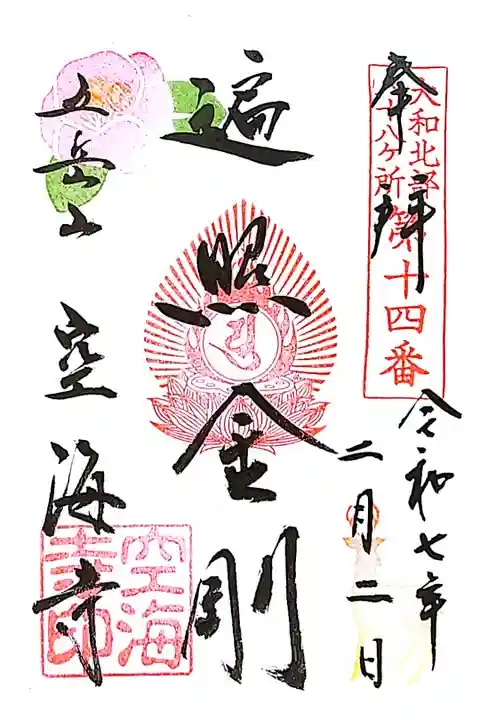 奉拝
大和北部
八十八ヶ所
第十四番
令和七年
二月二日
遍照金剛
五岳山
空海寺
空海
寺印